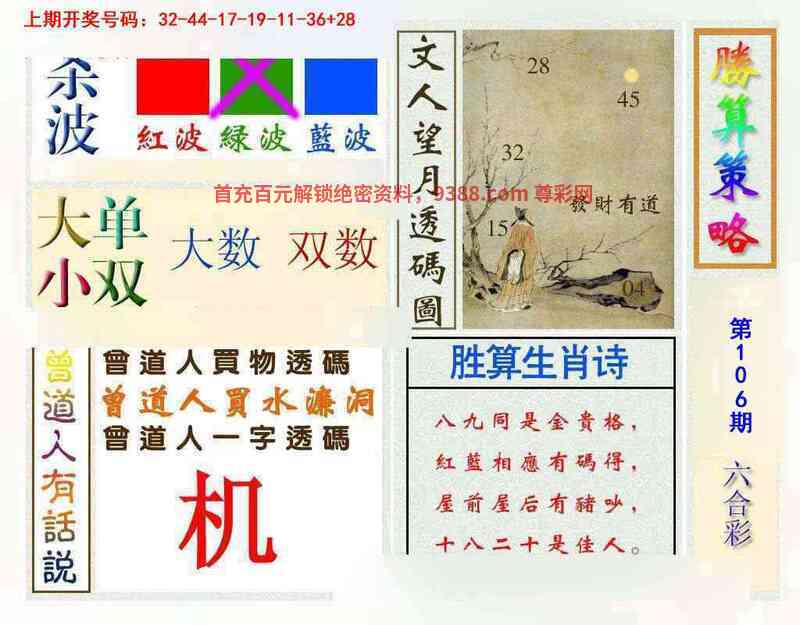 上期开奖号码：32-44-17-19-11-36+28
杀波
紅波 綠波 藍波
首充百元解锁绝密资料，9388.com 尊彩网
大单
小双
大数 双数
文人望月透碼圖
28
45
32
發財有道
15
04
勝算策略
第106期
六合彩
曾道人有話説
曾道人買物透碼
曾道人買水濂洞
曾道人一字透碼
机
胜算生肖诗
八九同是金貴格，
紅藍相應有碼得，
屋前屋后有豬吵，
十八二十是佳人。